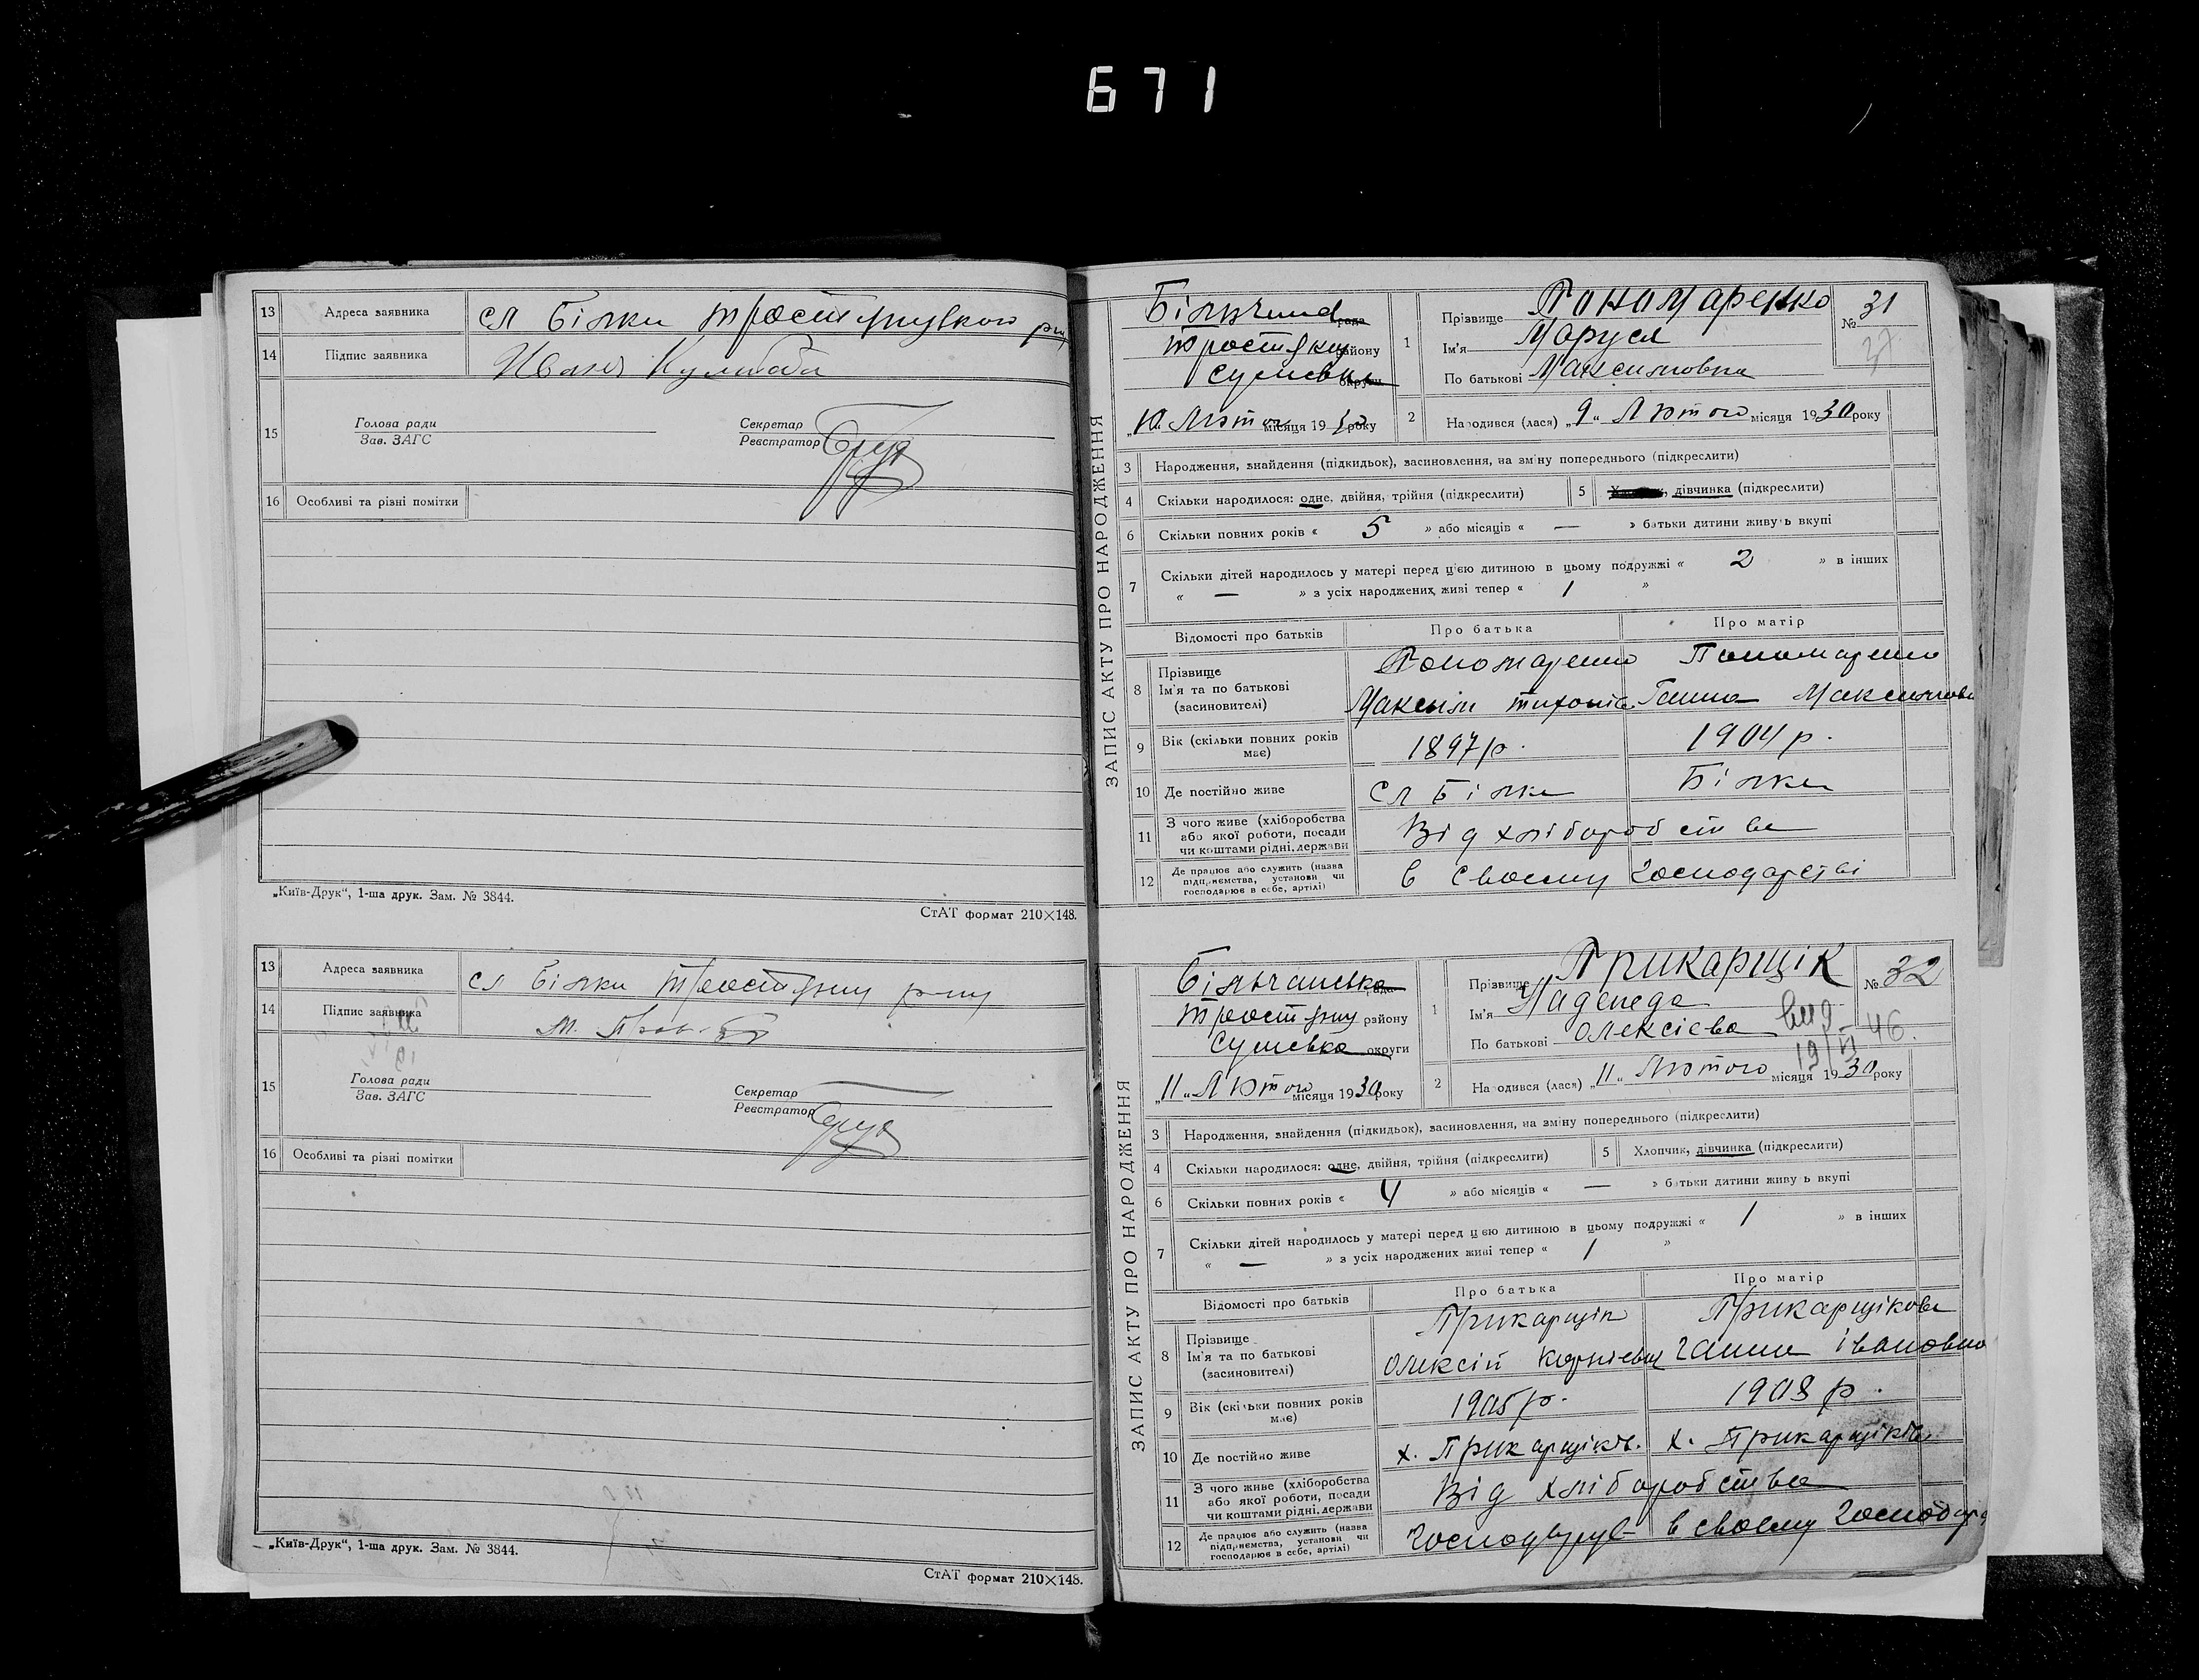 671
13 Адреса заявника сл Білки
14 Підпис заявника Иван
15 Голова ради Секретар
Зав. ЗАГС Реєстратор
16 Особливі та різні помітки
„Київ-Друк“, 1-ша друк. Зам. № 3844.
СтАТ формат 210×148.
13 Адреса заявника сл Білки
14 Підпис заявника М.
15 Голова ради Секретар
Зав. ЗАГС Реєстратор
16 Особливі та різні помітки
„Київ-Друк“, 1-ша друк. Зам. № 3844.
СтАТ формат 210×148.
ЗАПИС АКТУ ПРО НАРОДЖЕННЯ
рада
району
округи
„10 Лютого місяця 1930 року
1 Прізвище Пономаренко
Ім'я Маруся
По батькові Максимовна
№ 31
2 Народився (лася) „9“ Лютого місяця 1930 року
3 Народження, знайдення (підкидьок), засиновлення, на зміну попереднього (підкреслити)
4 Скільки народилося: одне, двійня, трійня (підкреслити) 5 дівчинка (підкреслити)
6 Скільки повних років « 5 » або місяців « — » батьки дитини живуть вкупі
7 Скільки дітей народилось у матері перед цією дитиною в цьому подружжі « 2 » в інших
« — » з усіх народжених, живі тепер « 1 »
Відомості про батьків Про батька Про матір
8 Прізвище Пономаренко Пономаренко
Ім'я та по батькові
(засиновителі) Максим Ганна
9 Вік (скільки повних років має) 1897 р. 1904 р.
10 Де постійно живе сл Білки Білки
11 З чого живе (хліборобства
або якої роботи, посади
чи коштами рідні, держави Від хліборобства
12 Де працює або служить (назва
підприємства, установи чи
господарює в себе, артілі) в своєму господарстві
ЗАПИС АКТУ ПРО НАРОДЖЕННЯ
Більчанська рада
району
Сумська округи
„11“ Лютого місяця 1930 року
1 Прізвище Прикарщік
Ім'я Надежда
По батькові Олексієва
№ 32
вид 19/VI 46.
2 Народився (лася) „11“ Лютого місяця 1930 року
3 Народження, знайдення (підкидьок), засиновлення, на зміну попереднього (підкреслити)
4 Скільки народилося: одне, двійня, трійня (підкреслити) 5 Хлопчик, дівчинка (підкреслити)
6 Скільки повних років « 4 » або місяців « — » батьки дитини живуть вкупі
7 Скільки дітей народилось у матері перед цією дитиною в цьому подружжі « 1 » в інших
« — » з усіх народжених живі тепер « 1 »
Відомості про батьків Про батька Про матір
8 Прізвище Прикарщік Прикарщікова
Ім'я та по батькові
(засиновителі) Олексій Корнієвич Ганна Івановна
9 Вік (скільки повних років має) 1905 р. 1908 р.
10 Де постійно живе х. Прикарщіків. х. Прикарщіків
11 З чого живе (хліборобства
або якої роботи, посади
чи коштами рідні, держави Від хліборобства
12 Де працює або служить (назва
підприємства, установи чи
господарює в себе, артілі) в своєму